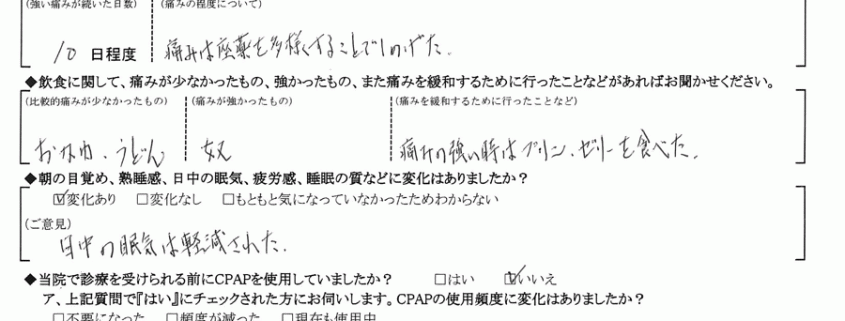 (強い痛みが続いた日数) (痛みの程度について)
10 日程度 痛みは座薬を多様することでしのげた。
◆飲食に関して、痛みが少なかったもの、強かったもの、また痛みを緩和するために行ったことなどがあればお聞かせください。
(比較的痛みが少なかったもの) (痛みが強かったもの) (痛みを緩和するために行ったことなど)
おかゆ、うどん 痛みの強い時はプリン、ゼリーを食べた。
◆朝の目覚め、熟睡感、日中の眠気、疲労感、睡眠の質などに変化はありましたか?
☑変化あり □変化なし □もともと気になっていなかったためわからない
(ご意見)
日中の眠気は軽減された。
◆当院で診療を受けられる前にCPAPを使用していましたか? □はい ☑いいえ
ア、上記質問で『はい』にチェックされた方にお伺いします。CPAPの使用頻度に変化はありましたか?
□不要になった □頻度が減った □現在も使用中